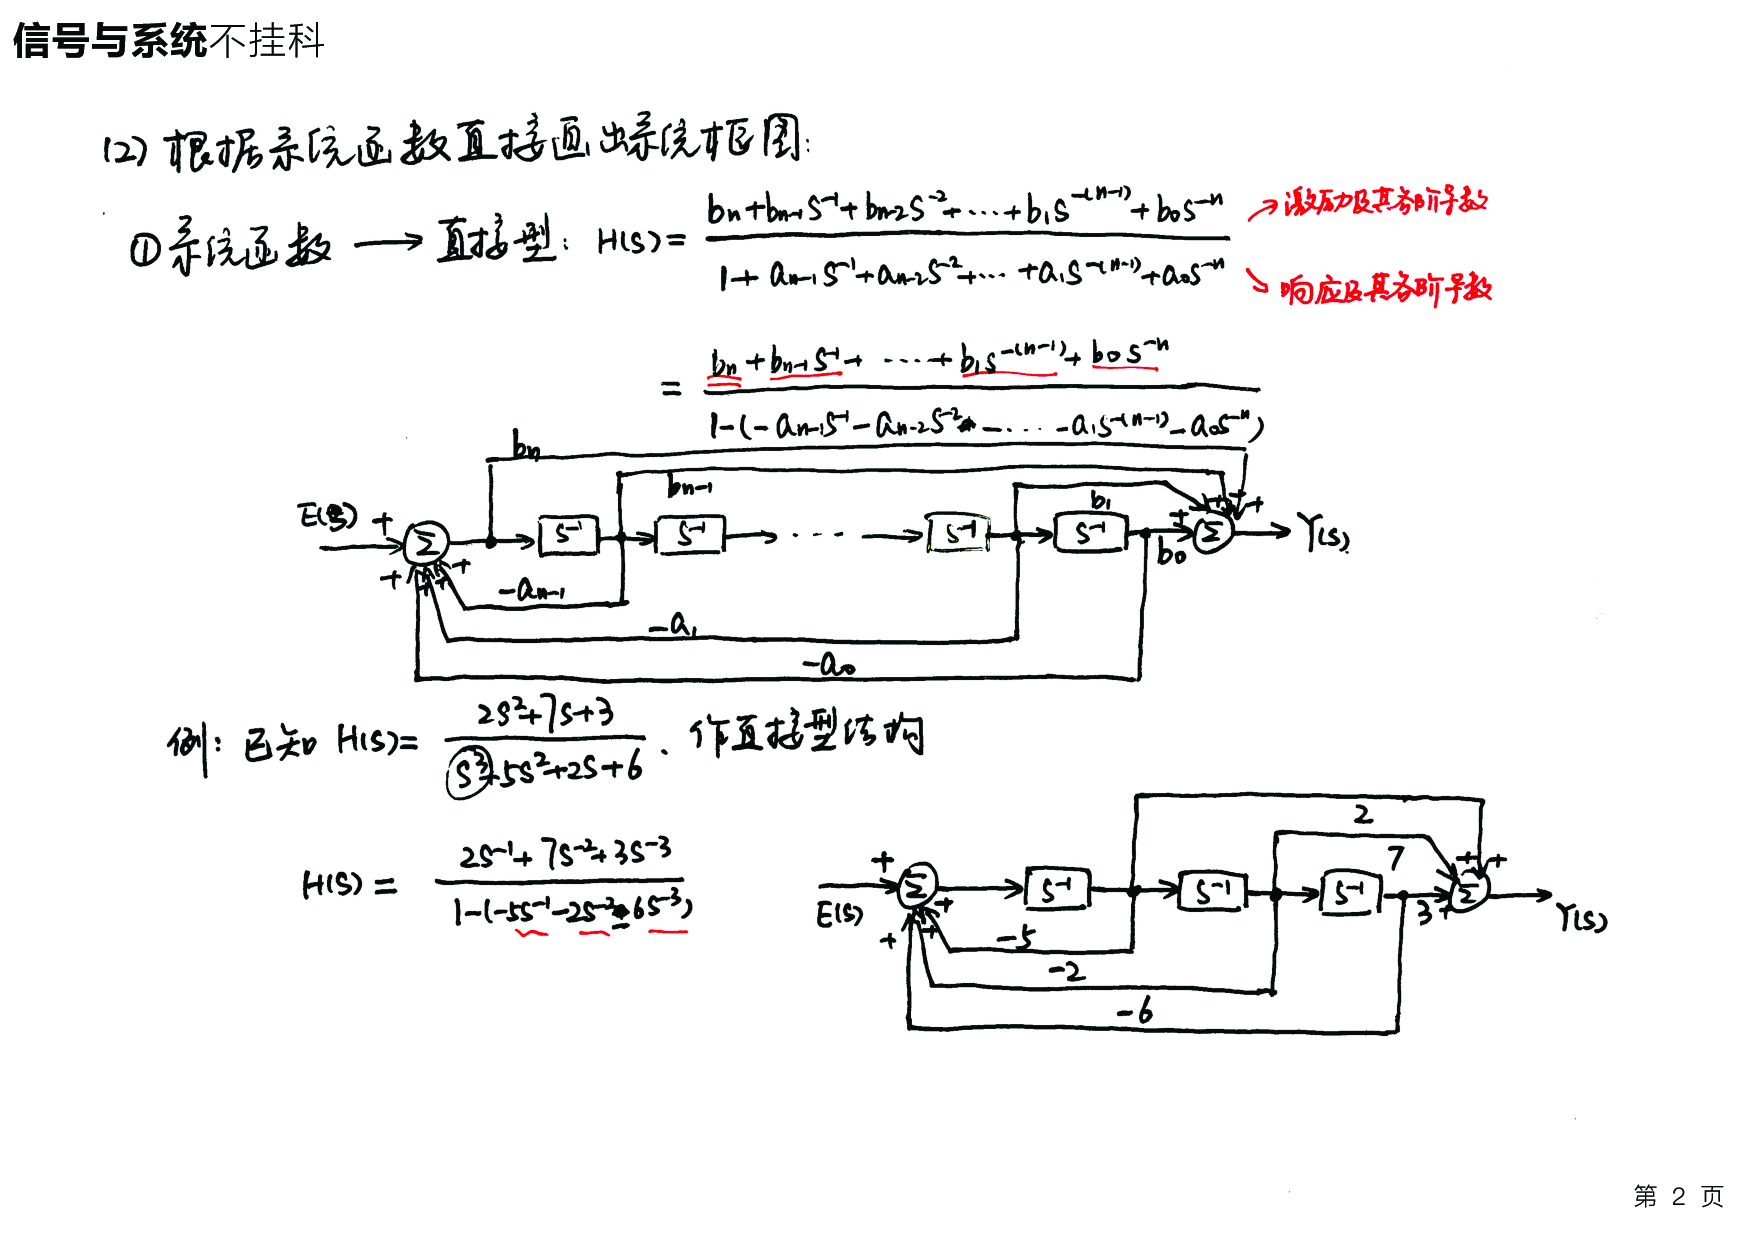 信号与系统不挂科
(2) 根据系统函数直接画出系统框图:
①系统函数 → 直接型: H(s)= (bn+bn-1s⁻¹+bn-2s⁻²+…+b1s⁻⁽ⁿ⁻¹⁾+b0s⁻ⁿ) / (1+an-1s⁻¹+an-2s⁻²+…+a1s⁻⁽ⁿ⁻¹⁾+a0s⁻ⁿ)
激励及其各阶导数
响应及其各阶导数
= (bn+bn-1s⁻¹+…+b1s⁻⁽ⁿ⁻¹⁾+b0s⁻ⁿ) / (1-(-an-1s⁻¹-an-2s⁻²-…-a1s⁻⁽ⁿ⁻¹⁾-a0s⁻ⁿ))
bn
bn-1
b1
E(s) + Σ s⁻¹ s⁻¹ … s⁻¹ s⁻¹ b0 + + + + Σ Y(s)
+ + + +
-an-1
-a1
-a0
例: 已知 H(s)= (2s²+7s+3) / (s³+5s²+2s+6). 作直接型结构
H(s)= (2s⁻¹+7s⁻²+3s⁻³) / (1-(-5s⁻¹-2s⁻²-6s⁻³))
2
7
E(s) + Σ s⁻¹ s⁻¹ s⁻¹ 3 + + + Σ Y(s)
+ + +
-5
-2
-6
第 2 页